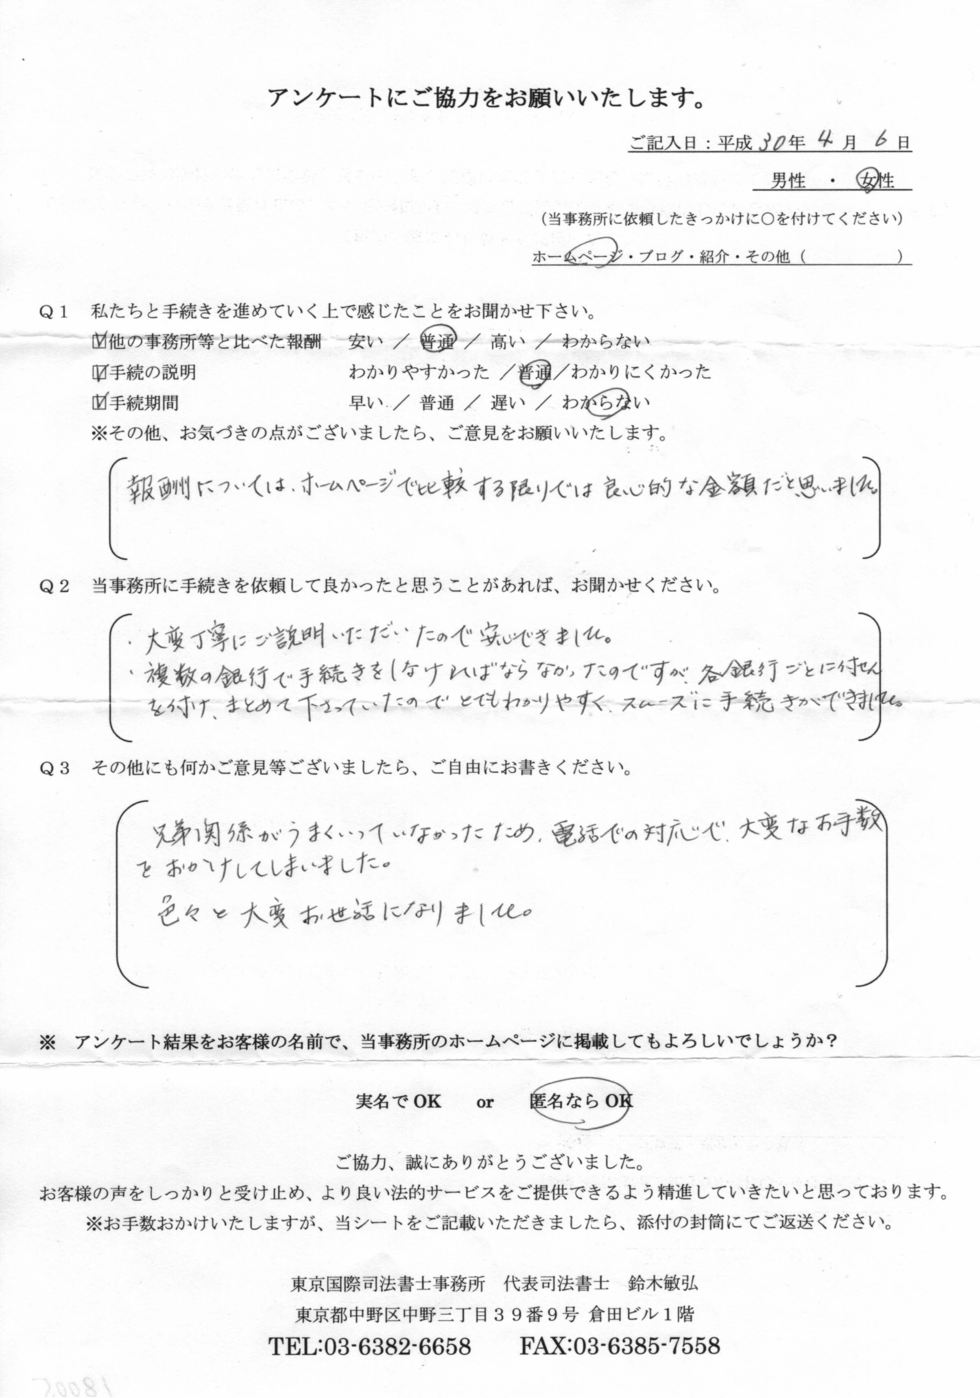 アンケートにご協力をお願いいたします。
ご記入日：平成30年4月6日
男性 ・ 女性
（当事務所に依頼したきっかけに○を付けてください）
ホームページ・ブログ・紹介・その他（　　　　　）
Ｑ１　私たちと手続きを進めていく上で感じたことをお聞かせ下さい。
☑他の事務所等と比べた報酬　安い ／ 普通 ／ 高い ／ わからない
☑手続の説明　わかりやすかった ／普通／わかりにくかった
☑手続期間　早い ／ 普通 ／ 遅い ／ わからない
※その他、お気づきの点がございましたら、ご意見をお願いいたします。
報酬については、ホームページで比較する限りでは良心的な金額だと思いました。
Ｑ２　当事務所に手続きを依頼して良かったと思うことがあれば、お聞かせください。
・大変丁寧にご説明いただいたので安心できました。
・複数の銀行で手続きをしなければならなかったのですが、各銀行ごとに付せん
を付け、まとめて下さっていたのでとてもわかりやすく、スムーズに手続きができました。
Ｑ３　その他にも何かご意見等ございましたら、ご自由にお書きください。
兄弟関係がうまくいっていなかったため、電話での対応で、大変なお手数
をおかけしてしまいました。
色々と大変お世話になりました。
※　アンケート結果をお客様の名前で、当事務所のホームページに掲載してもよろしいでしょうか？
実名でOK　or　匿名ならOK
ご協力、誠にありがとうございました。
お客様の声をしっかりと受け止め、より良い法的サービスをご提供できるよう精進していきたいと思っております。
※お手数おかけいたしますが、当シートをご記載いただきましたら、添付の封筒にてご返送ください。
東京国際司法書士事務所　代表司法書士　鈴木敏弘
東京都中野区中野三丁目３９番９号 倉田ビル１階
TEL:03-6382-6658　FAX:03-6385-7558